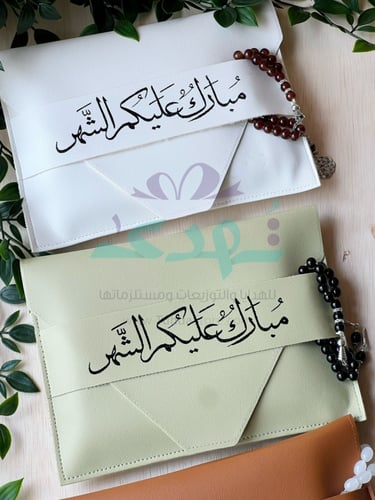 مُبارك عليكم الشَّهر
تُهدى
للهدايا والتوزيعات ومستلزماتها
مُبارك عليكم الشَّهر